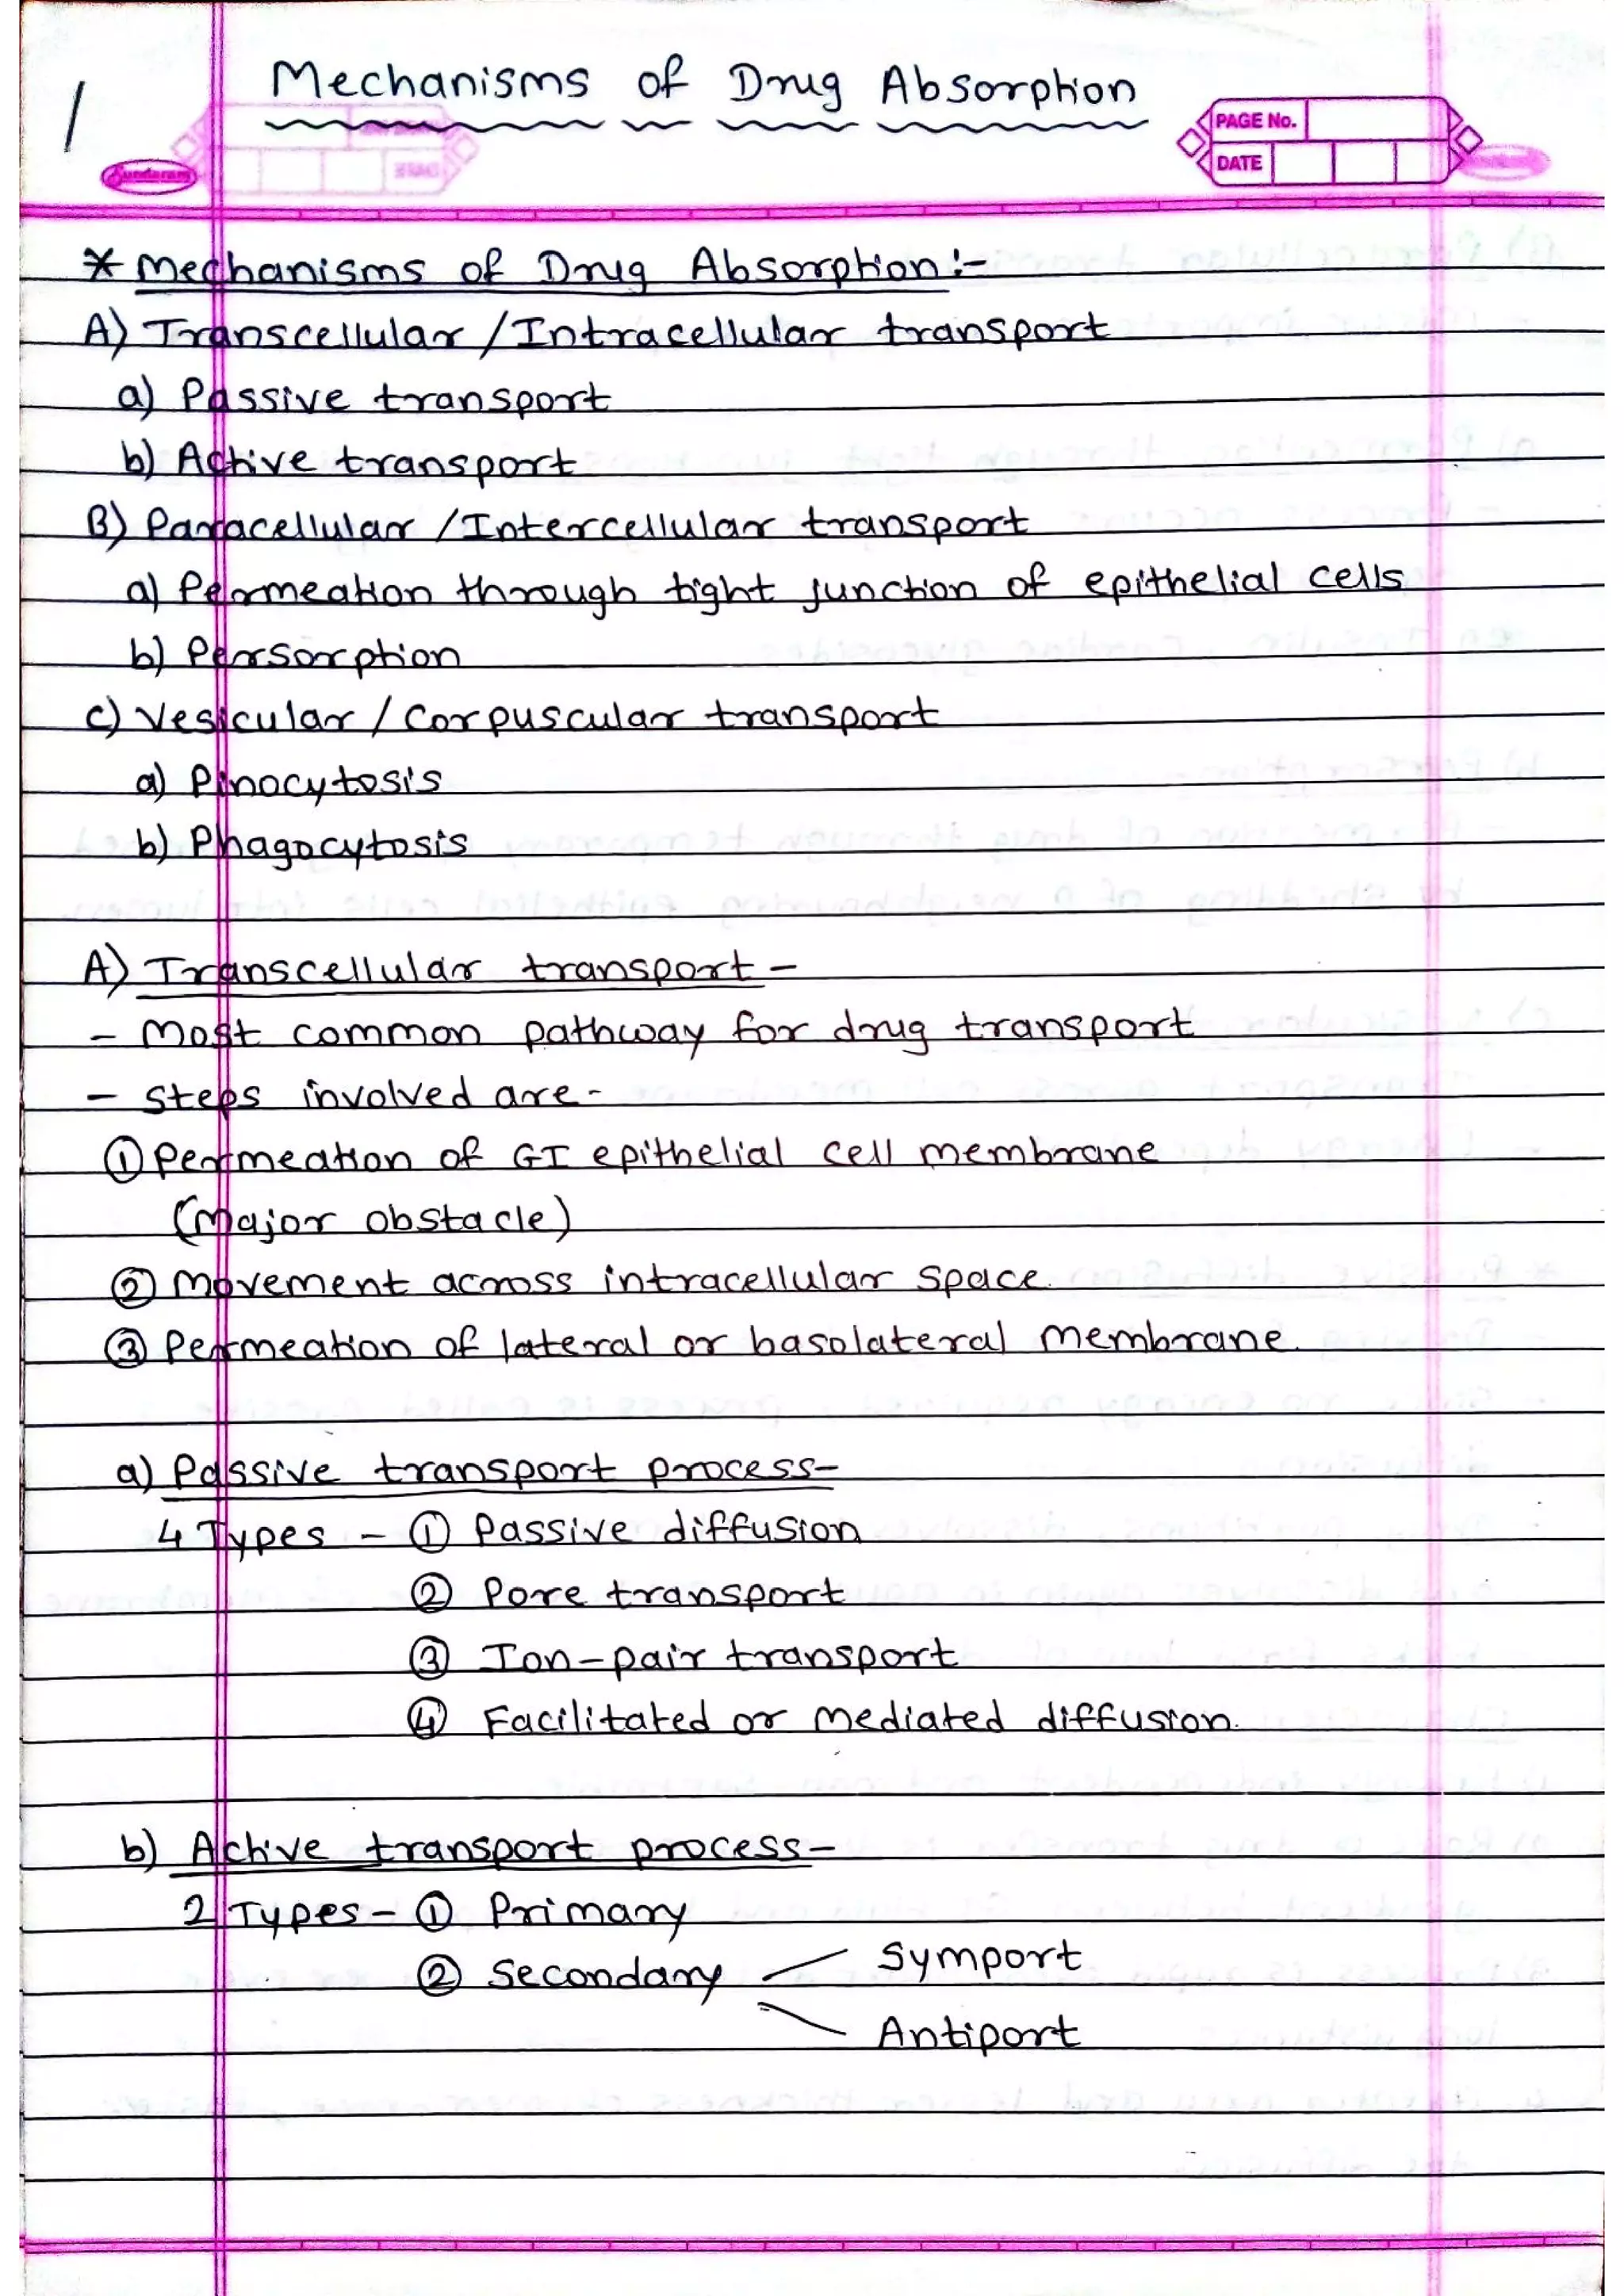 Mechanisms of Drug Absorption
1
PAGE No.
DATE
Sundaram
* Mechanisms of Drug Absorption :-
A) Transcellular / Intracellular transport
a) Passive transport
b) Active transport
B) Paracellular / Intercellular transport
a) Permeation through tight junction of epithelial cells
b) Persorption
c) Vesicular / Corpuscular transport
a) Pinocytosis
b) Phagocytosis
A) Transcellular transport -
- Most common pathway for drug transport
- Steps involved are -
① Permeation of GI epithelial cell membrane
(Major obstacle)
② Movement across intracellular space.
③ Permeation of lateral or basolateral membrane.
a) Passive transport process-
4 Types - ① Passive diffusion
② Pore transport
③ Ion-pair transport
④ Facilitated or mediated diffusion.
b) Active transport process-
2 Types - ① Primary
② Secondary Symport
Antiport